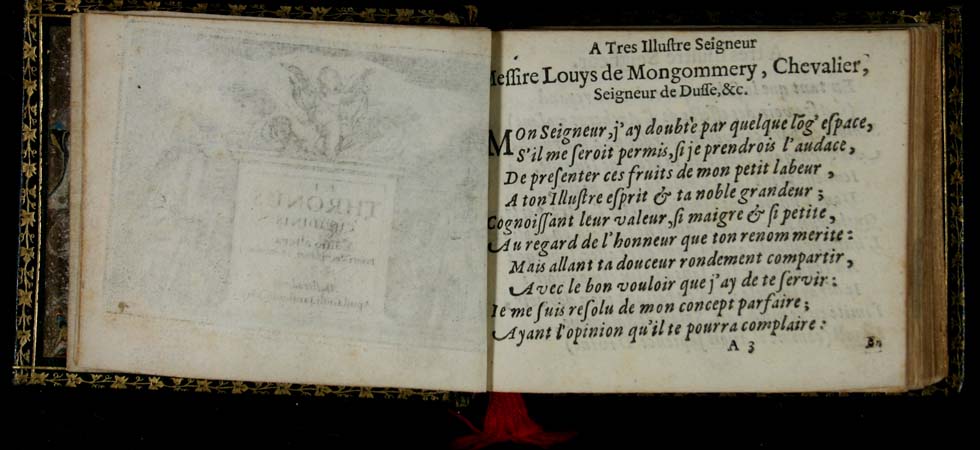 A Tres Illuſtre Seigneur
Meſſire Louys de Mongommery, Chevalier,
Seigneur de Duſſe, &c.
MOn Seigneur, j'ay doubtè par quelque lōg' eſpace,
S'il me ſeroit permis, ſi je prendrois l'audace,
De preſenter ces fruits de mon petit labeur,
A ton Illuſtre eſprit & ta noble grandeur;
Cognoiſſant leur valeur, ſi maigre & ſi petite,
Au regard de l'honneur que ton renom merite:
Mais allant ta douceur rondement compartir,
Avec le bon vouloir que j'ay de te ſervir:
Ie me ſuis reſolu de mon concept parfaire;
Ayant l'opinion qu'il te pourra complaire:
A 3